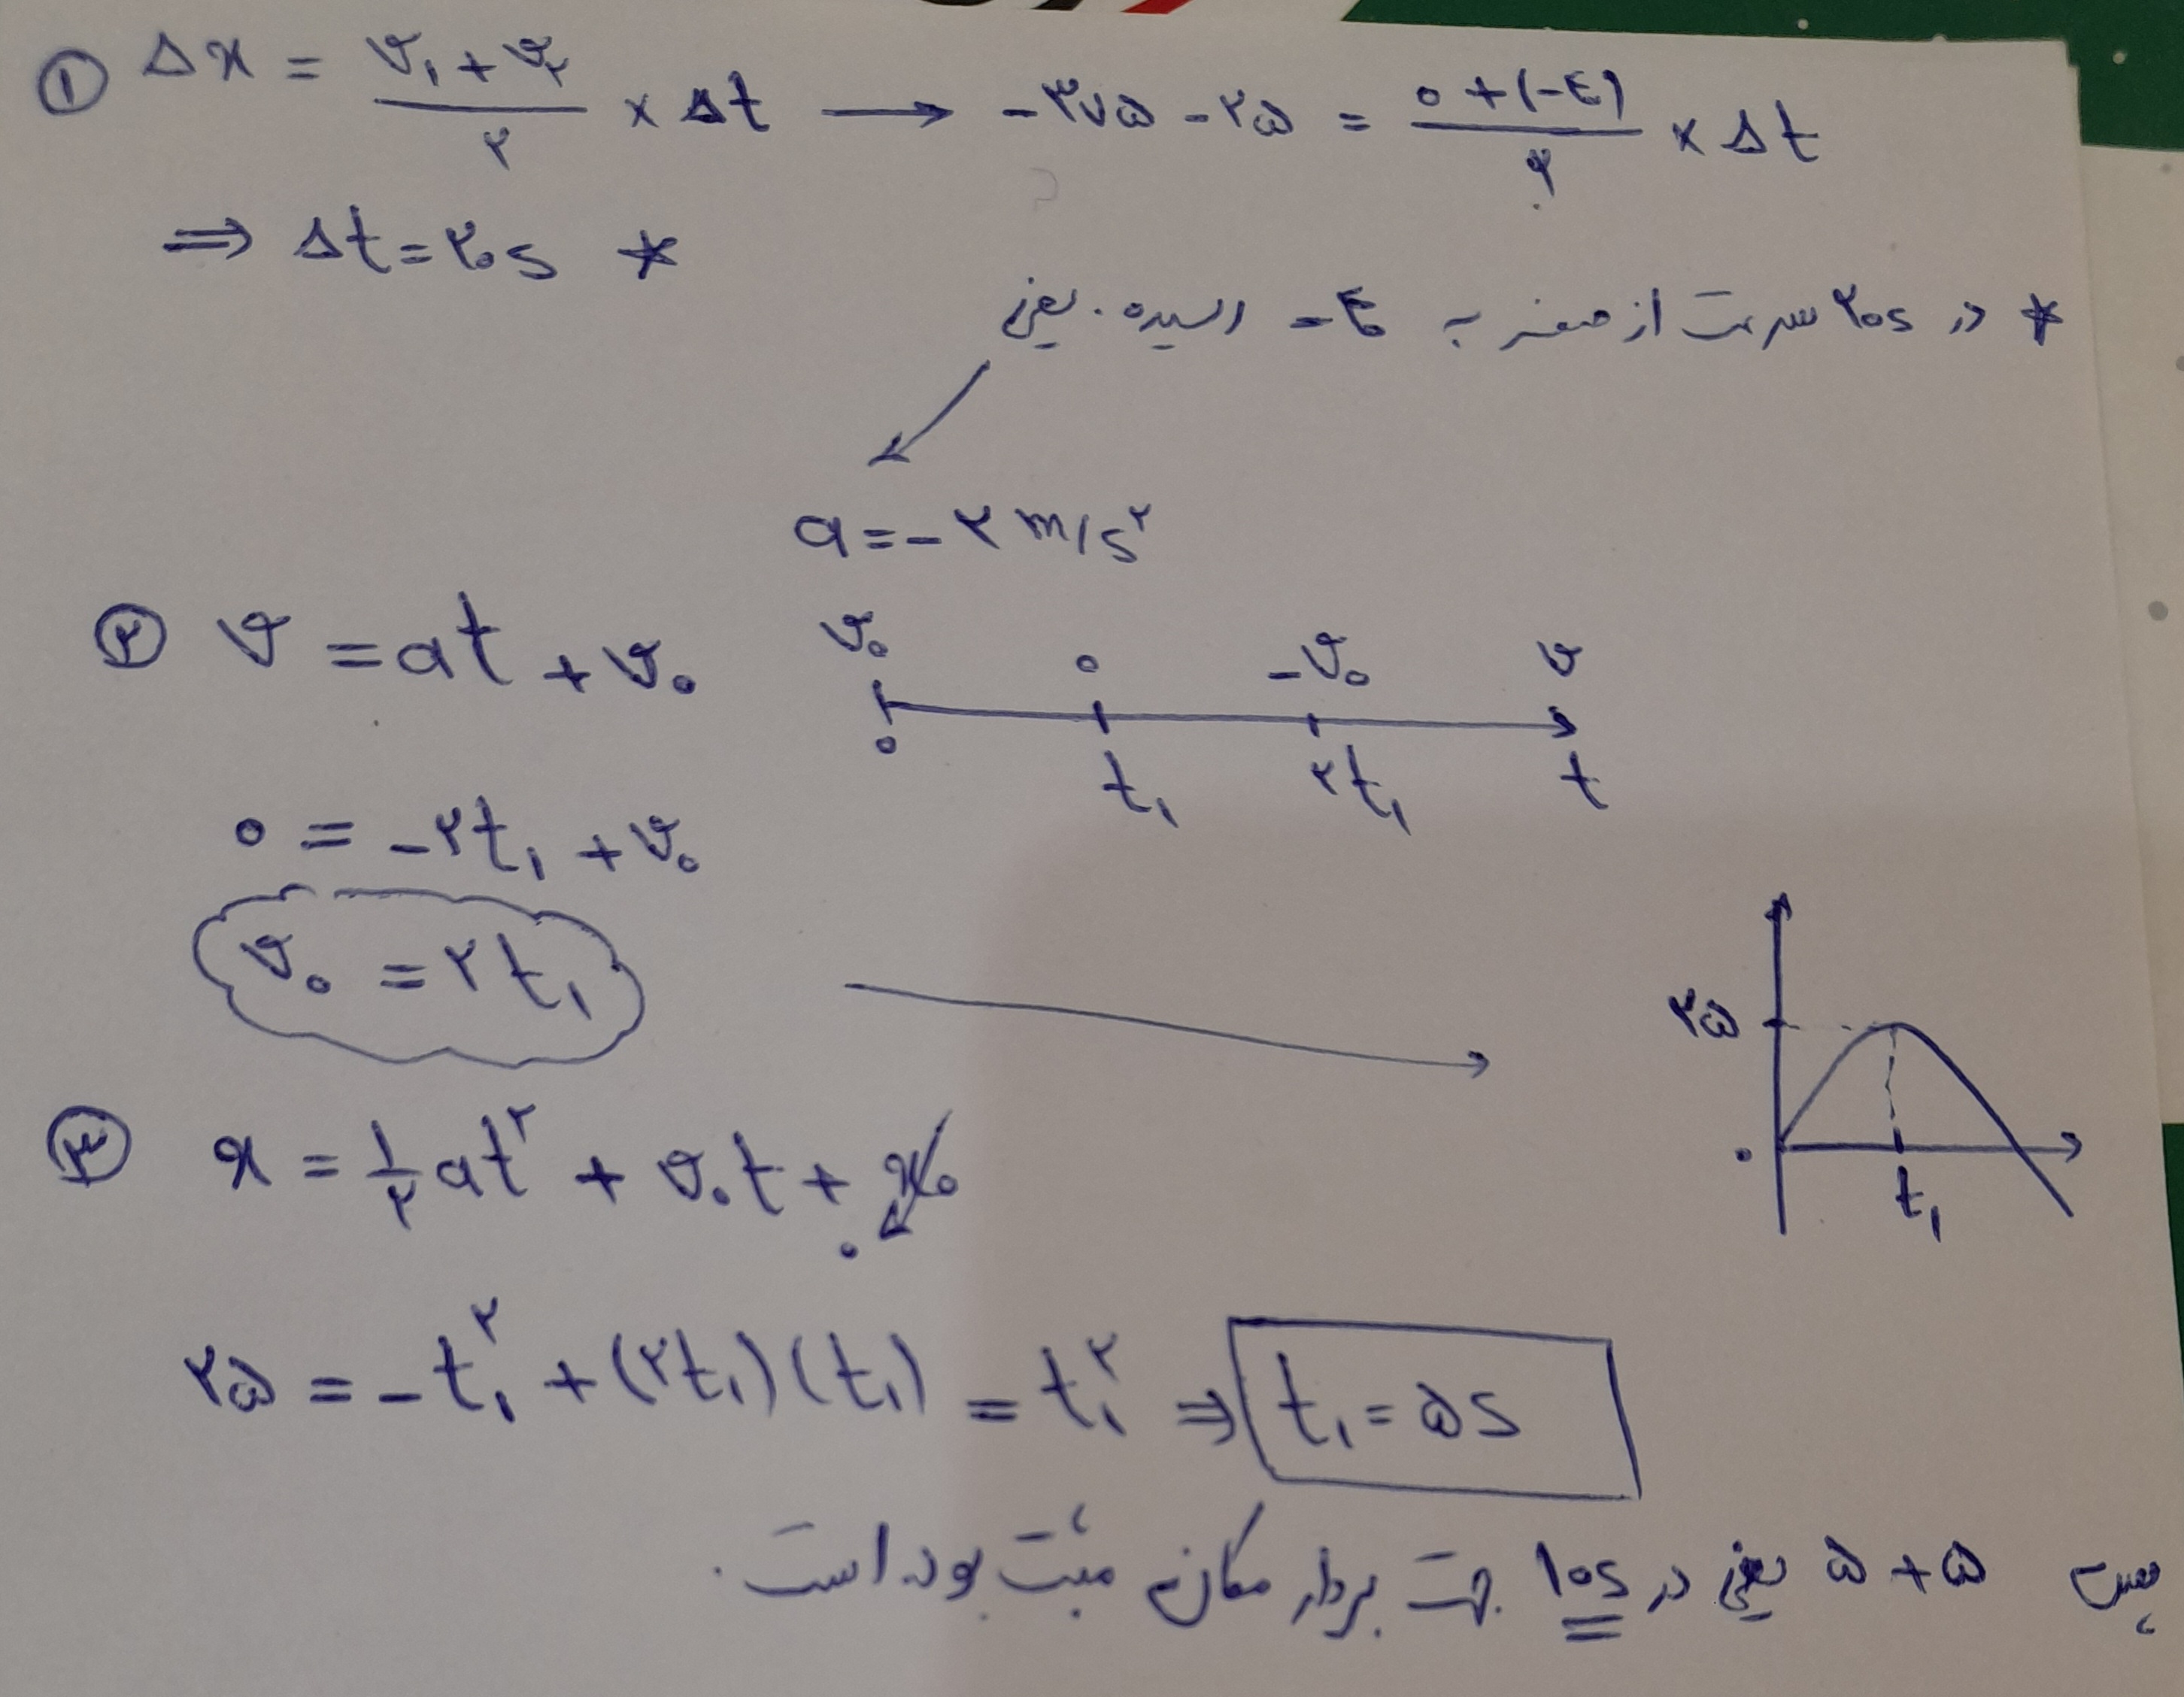 ① Δx = (v₁ + v₂)/۲ × Δt → -۳۷۵ - ۲۵ = (۰ + (-۴۰))/۲ × Δt
⇒ Δt = ۲۰s *
* در ۲۰s سرعت از صفر به -۴۰ رسیده. یعنی
a = -۲ m/s^۲
② v = at + v₀
v₀ ۰ -v₀ v
۰ t₁ ۲t₁ t
۰ = -۲t₁ + v₀
v₀ = ۲t₁
۲۵
۰ t₁
③ x = ۱/۲ at^۲ + v₀t + x₀
۰
۲۵ = -t₁^۲ + (۲t₁)(t₁) = t₁^۲ ⇒ t₁ = ۵s
پس ۵ + ۵ یعنی در ۱۰s جهت بردار مکان مثبت بوده است.